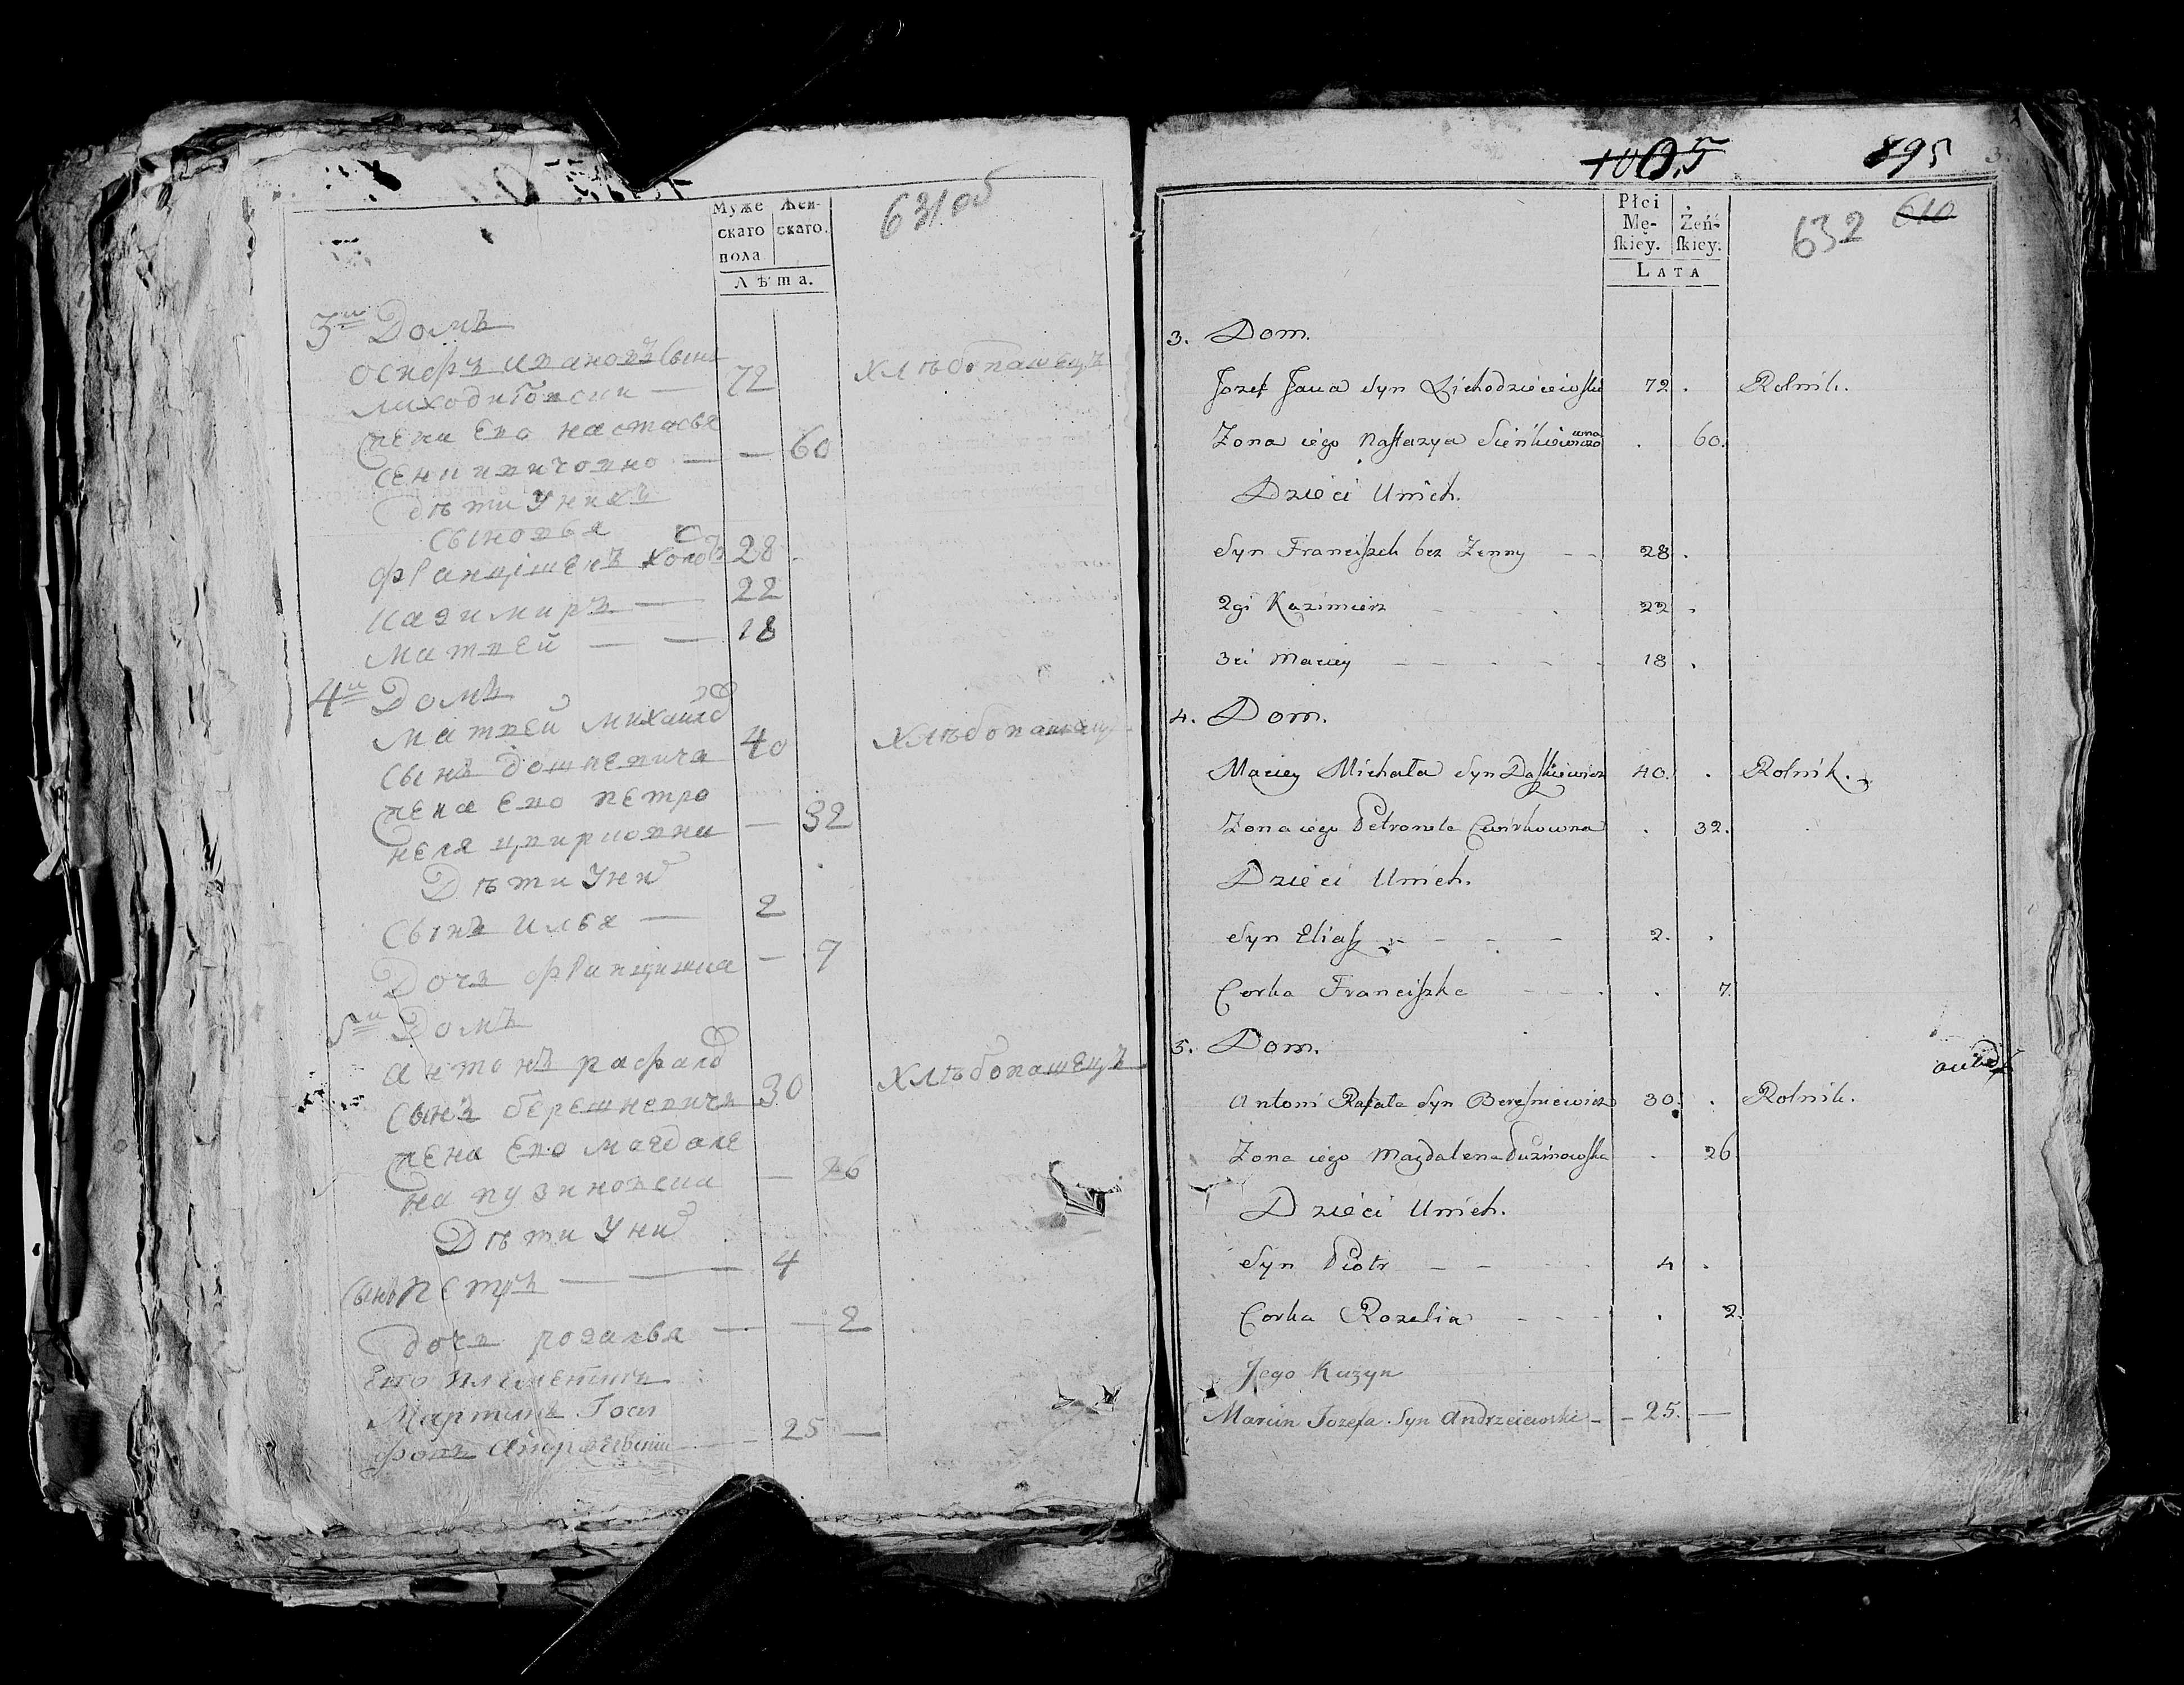 631 об
Муже
скаго
пола
Жен-
скаго.
Лѣта.
3й Домъ
Осифъ Ивановъ Сынъ
Лиходиевски — 72 Хлѣбопашецъ
Жена Ево Настасья
Сенкивичовна — — 60
Дѣти У нихъ
Сыновья
Францішекъ холос 28
Казимиръ — 22
Матвей — — 18
4й Домъ
Матвей Михайло
Сынъ Дашкевичъ 40 Хлѣбопашец
Жена Ево Петро
неля Цвирковна — 32
Дѣти У них
Сынъ Илья — 2
Дочь Францишка — 7
5й Домъ
Антонъ рафало
Сынъ берешневичъ 30 Хлѣбопашецъ
Жена Ево Магдале
на пузиновска — 26
Дѣти У них
Сынъ Петръ — — 4
дочь розалья — — 2
Его племетникъ
Мартинъ Госи
фовъ Андреевски — 25 —
1005 895
Płci
Mę-
ſkiey.
Żeń-
ſkiey.
LATA
632 610
3. Dom.
Jozef Jana Syn Lichodzieiewski 72 . Rolnik.
Zona iego Nastazya Sieńkiewiczowna . 60.
Dzieci Unich.
Syn Franciszek bez Zenny - - 28 .
2gi Kazimierz - - 22 .
3ci Maciey - - - - 18 .
4. Dom.
Maciey Michała Syn Daszkiewicz 40. . Rolnik.
Zona iego Petronela Cwirkowna . 32.
Dzieci Unich.
Syn Eliasz - - - - 2. .
Corka Franciszka - - - . 7.
5. Dom.
Antoni Rafała Syn Bereśniewicz 30. . Rolnik.
Zona iego Magdalena Puzinowska . 26
Dzieci Unich.
Syn Piotr - - - 4 .
Corka Rozalia - - - . 2.
Jego Kuzyn
Marcin Jozefa Syn Andrzeiewski - - 25. —